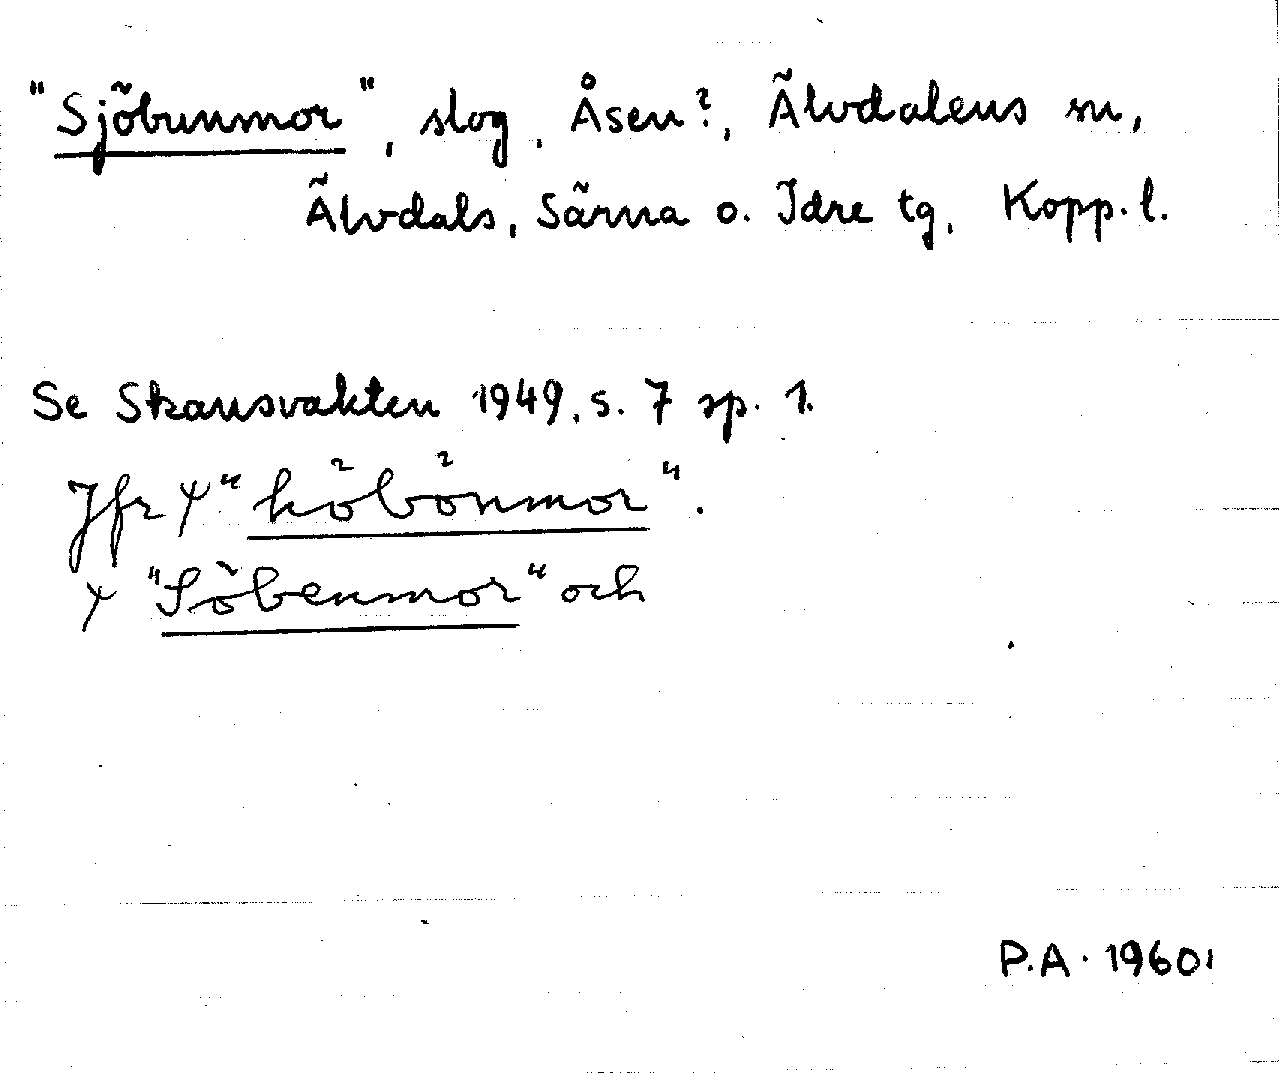 "Sjöbunmor", slog, Åsen?, Älvdalens sn,
Älvdals, Särna o. Idre tg, Kopp. l.
Se Skansvakten 1949, s. 7 sp. 1.
Jfr × "höbönmor".
× "Söbenmor" och
P.A. 1960